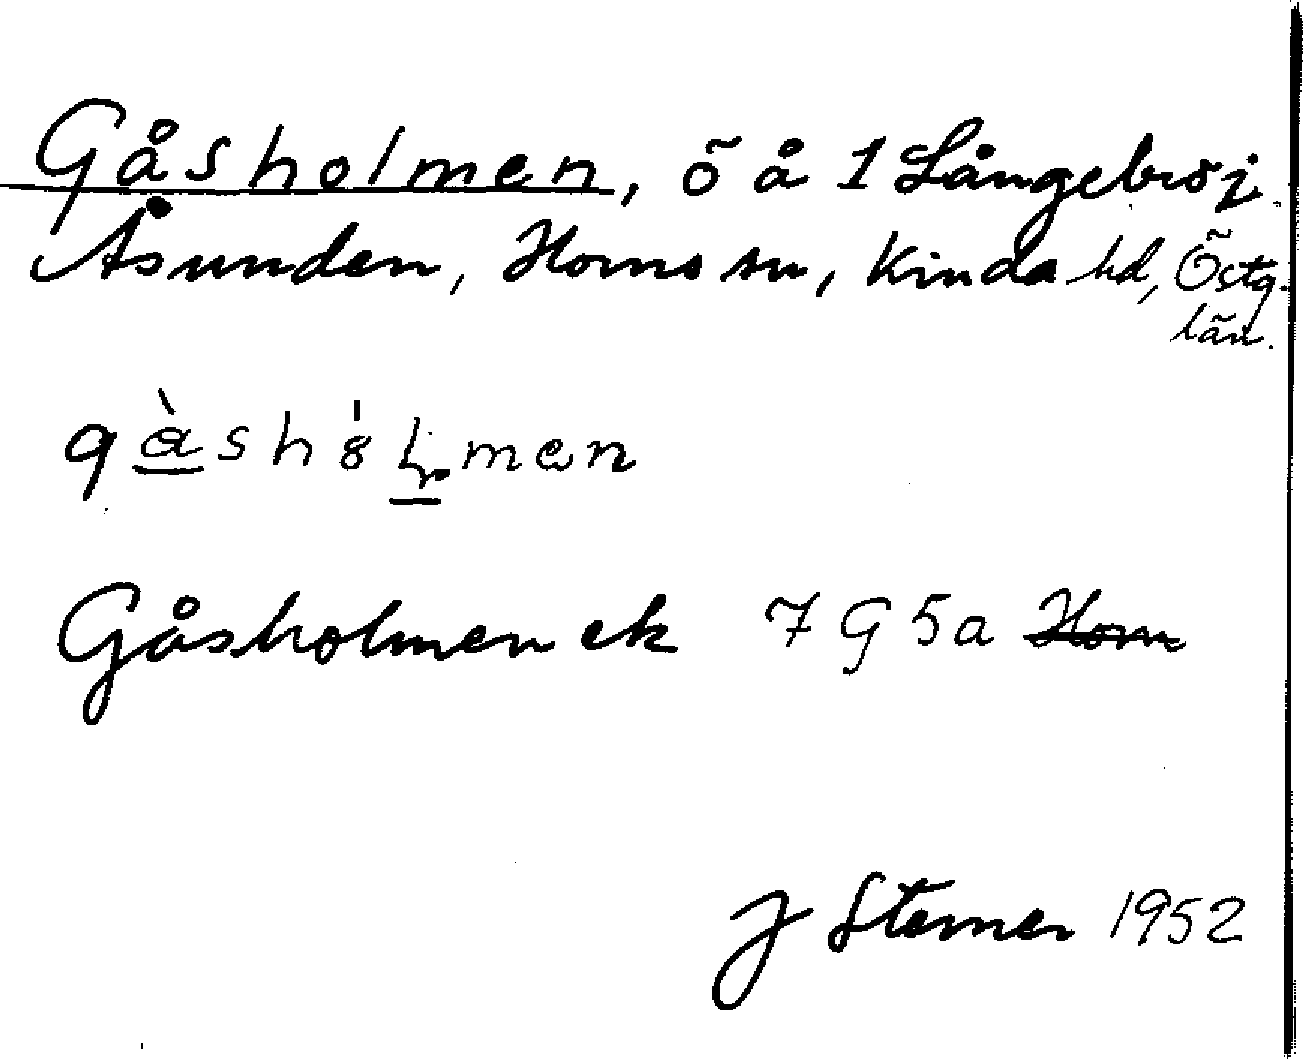 Gåsholmen, ö å 1 Långebro i
Åsunden, Horns sn, Kinda hd, Östg.
län.
gàshol̥men
Gåsholmen ek 7G5a Horn
J Sterner 1952